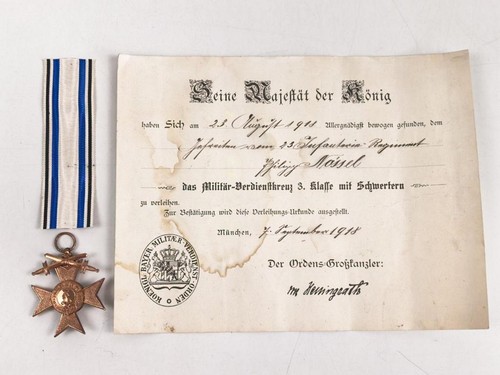 Seine Majestät der König
haben Sich am 23. August 1918 Allergnädigst bewogen gefunden, dem
Gefreiten vom 23. Infanterie-Regiment
Philipp Mössel
das Militär-Verdienstkreuz 3. Klasse mit Schwertern
zu verleihen.
Zur Bestätigung wird diese Verleihungs-Urkunde ausgestellt.
München, 7. September 1918
Der Ordens-Großkanzler:
KOENIGL. BAYER. MILITÆR-VERDIENST-ORDEN